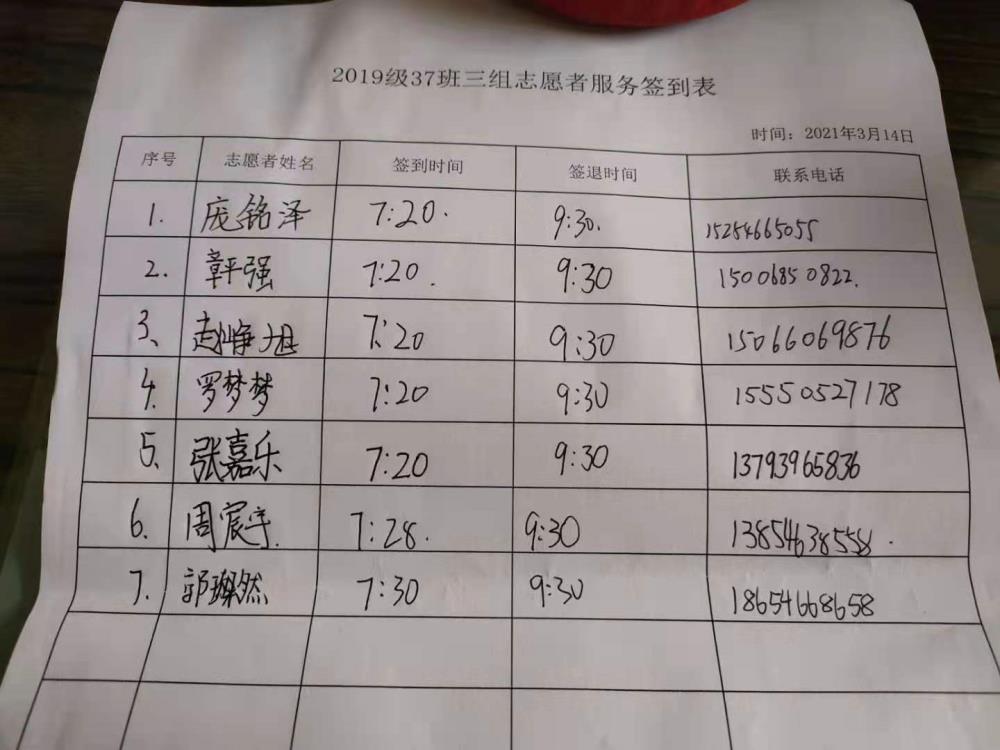 2019级37班三组志愿者服务签到表
时间：2021年3月14日
序号 志愿者姓名 签到时间 签退时间 联系电话
1. 庞铭泽 7:20. 9:30. 15254665055
2. 韩强 7:20. 9:30 15006850822.
3、 赵峥旭 7:20 9:30 15066069876
4. 罗梦梦 7:20 9:30 15550527178
5. 张嘉乐 7:20 9:30 13793965836
6. 周宸宇. 7:28. 9:30 13854638558.
7. 郭璨然 7:30 9:30 18654668658